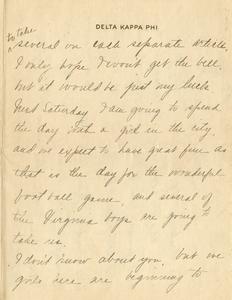 DELTA KAPPA PHI
to take
several on each separate article.
I only hope I won't get the bell,
but it would be just my luck.
Next Saturday I am going to spend
the day with a girl in the city,
and we expect to have great fun as
that is the day for the wonderful
foot ball game, and several of
the Virginia boys are going to
take us.
I don't know about you, but we
girls here are beginning to